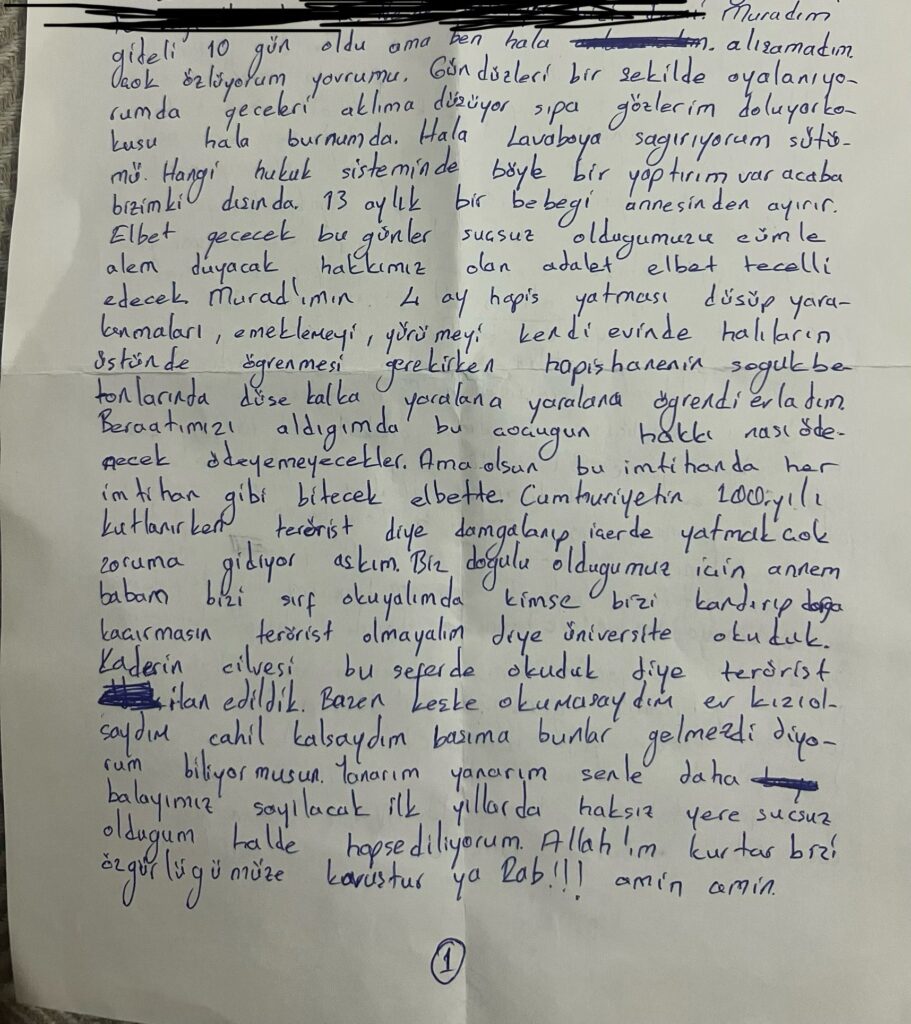 Muradım
gideli 10 gün oldu ama ben hala alışamadım.
Çok özlüyorum yavrumu. Gündüzleri bir şekilde oyalanıyo-
rumda geceleri aklıma düşüyor sıpa gözlerim doluyor ko-
kusu hala burnumda. Hala Lavaboya sagırıyorum sütü-
mü. Hangi hukuk sisteminde böyle bir yaptırım var acaba
bizimki dısında. 13 aylık bir bebegi annesinden ayırır.
Elbet gececek bu günler sucsuz oldugumuzu cümle
alem duyacak hakkımız olan adalet elbet tecelli
edecek Murad'ımın 4 ay hapis yatması düsüp yara-
lanmaları, emeklemeyi, yürümeyi kendi evinde halıların
üstünde ögrenmesi gerekirken hapishanenin soguk be-
tonlarında düse kalka yaralana yaralana ögrendi evladım
Beraatimizi aldıgımda bu cocugun hakkı nası öde-
necek ödeyemeyecekler. Ama olsun bu imtihanda her
imtihan gibi bitecek elbette. Cumhuriyetin 100.yılı
kutlanırken terörist diye damgalanıp icerde yatmak cok
zoruma gidiyor askım. Biz doğulu oldugumuz icin annem
babam bizi sırf okuyalımda kimse bizi kandırıp daga
kacırmasın terörist olmayalım diye üniversite okuduk.
Kaderin cilvesi bu seferde okuduk diye terörist
ilan edildik. Bazen keske okumasaydım ev kızı ol-
saydım cahil kalsaydım basıma bunlar gelmezdi diyo-
rum biliyor musun. Yanarım yanarım senle daha
balayımız sayılacak ilk yıllarda haksız yere sucsuz
oldugum halde hapsediliyorum. Allah'ım kurtar bizi
özgürlügümüze kavustur ya Rab!!! amin amin.
1